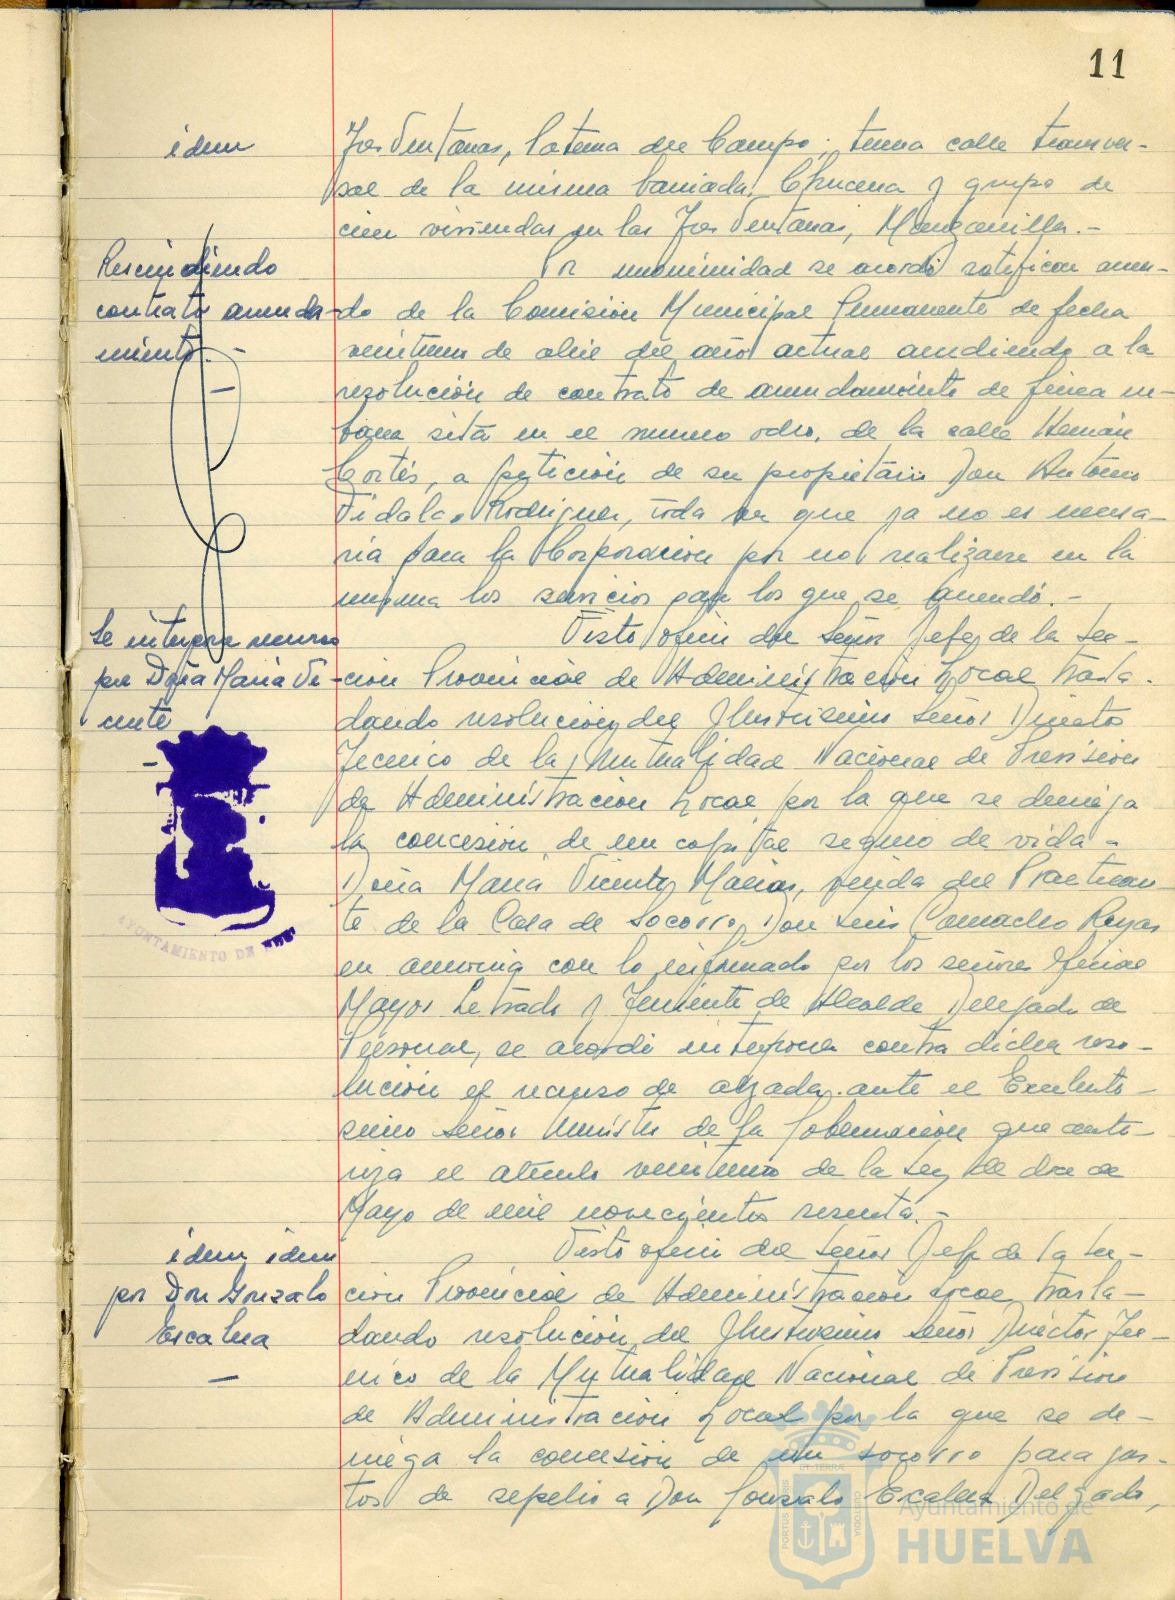 11
idem
Tres Ventanas, Paterna del Campo; tercera calle transver-
sal de la misma barriada, Chucena y grupo de
cien viviendas en las Tres Ventanas, Manzanilla.-
Rescindiendo
contrato arrenda-
miento.-
Por unanimidad se acordó ratificar acuer-
do de la Comisión Municipal Permanente de fecha
de abril del año actual accediendo a la
resolución de contrato de arrendamiento de finca ur-
bana sita en el número ocho, de la calle Hernán
Cortés, a petición de su propietario Don Antonio
Vidal Rodríguez, toda vez que ya no es necesa-
ria para la Corporación por no realizarse en la
misma los servicios para los que se arrendó.-
Se interpone recurso
por Doña María Vi-
cente
-
Visto oficio del Señor Jefe de la Sec-
ción Provincial de Administración Local trasla-
dando resolución del Ilustrísimo Señor Director
Técnico de la Mutualidad Nacional de Previsión
de Administración Local por la que se deniega
la concesión de un capital seguro de vida
Doña María Vicente Macías, viuda del Practican-
te de la Casa de Socorro, Don Luis Camacho Rojas
en armonía con lo informado por los señores Oficial
Mayor Letrado y Teniente de Alcalde Delegado de
Personal, se acordó interponer contra dicha reso-
lución el recurso de alzada ante el Excelentí-
simo Señor Ministro de la Gobernación que auto-
riza el artículo de la Ley de doce de
Mayo de mil novecientos sesenta.-
AYUNTAMIENTO DE
idem idem
por Don Gonzalo
Escalera
-
Visto oficio del Señor Jefe de la Sec-
ción Provincial de Administración Local trasla-
dando resolución del Ilustrísimo Señor Director Téc-
nico de la Mutualidad Nacional de Previsión
de Administración Local por la que se de-
niega la concesión de un socorro para gas-
tos de sepelio a Don Gonzalo Escalera Delgado,
PORTUS MARIS
ET TERRAE
CUSTODIA
Ayuntamiento de
HUELVA